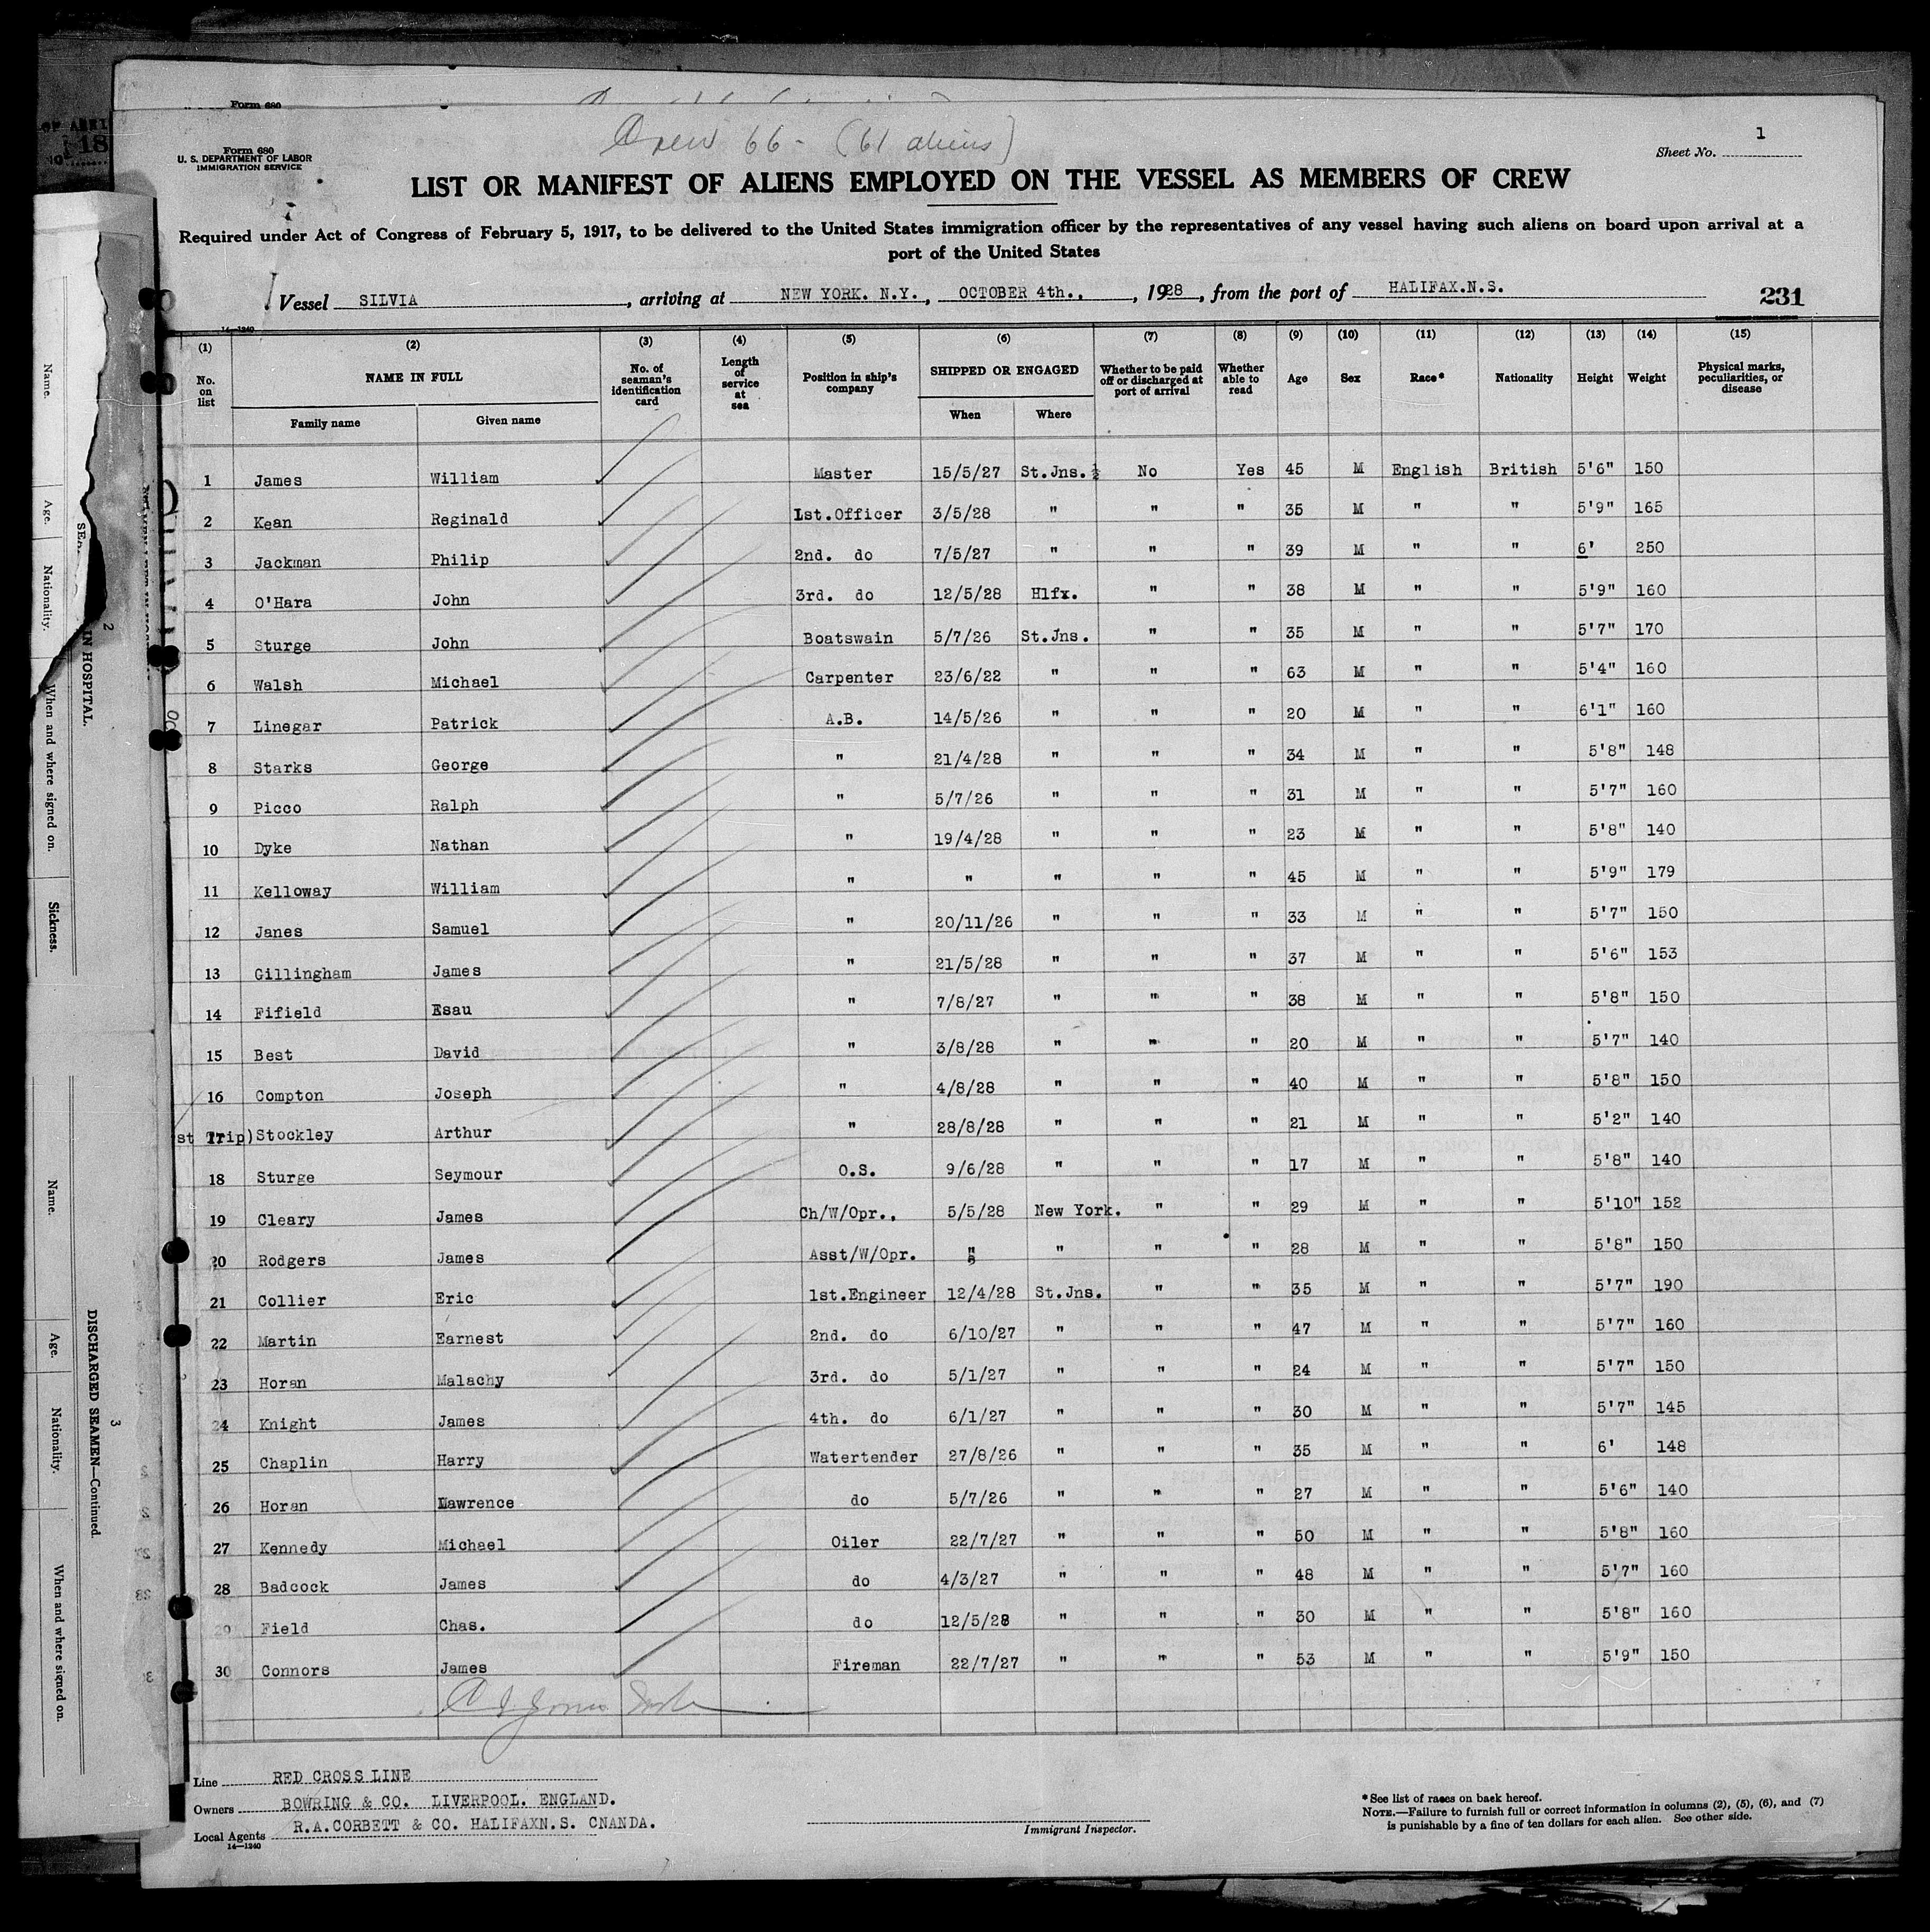 Form 680
OF ARRI
18
Crew 66 - (61 aliens)
1
Form 680
U. S. DEPARTMENT OF LABOR
IMMIGRATION SERVICE
Sheet No.
LIST OR MANIFEST OF ALIENS EMPLOYED ON THE VESSEL AS MEMBERS OF CREW
Required under Act of Congress of February 5, 1917, to be delivered to the United States immigration officer by the representatives of any vessel having such aliens on board upon arrival at a
port of the United States
Vessel SILVIA, arriving at NEW YORK. N.Y., OCTOBER 4th., , 1928, from the port of HALIFAX.N.S. 231
14—1240
(1) (2) (3) (4) (5) (6) (7) (8) (9) (10) (11) (12) (13) (14) (15)
No. on list NAME IN FULL No. of seaman's identification card Length of service at sea Position in ship's company SHIPPED OR ENGAGED Whether to be paid off or discharged at port of arrival Whether able to read Age Sex Race* Nationality Height Weight Physical marks, peculiarities, or disease
Family name Given name When Where
1 James William Master 15/5/27 St.Jns. No Yes 45 M English British 5'6" 150
2 Kean Reginald 1st.Officer 3/5/28 " " " 35 M " " 5'9" 165
3 Jackman Philip 2nd. do 7/5/27 " " " 39 M " " 6' 250
4 O'Hara John 3rd. do 12/5/28 Hlfx. " " 38 M " " 5'9" 160
5 Sturge John Boatswain 5/7/26 St.Jns. " " 35 M " " 5'7" 170
6 Walsh Michael Carpenter 23/6/22 " " " 63 M " " 5'4" 160
7 Linegar Patrick A.B. 14/5/26 " " " 20 M " " 6'1" 160
8 Starks George " 21/4/28 " " " 34 M " " 5'8" 148
9 Picco Ralph " 5/7/26 " " " 31 M " " 5'7" 160
10 Dyke Nathan " 19/4/28 " " " 23 M " " 5'8" 140
11 Kelloway William " " " " " 45 M " " 5'9" 179
12 Janes Samuel " 20/11/26 " " " 33 M " " 5'7" 150
13 Gillingham James " 21/5/28 " " " 37 M " " 5'6" 153
14 Fifield Esau " 7/8/27 " " " 38 M " " 5'8" 150
15 Best David " 3/8/28 " " " 20 M " " 5'7" 140
16 Compton Joseph " 4/8/28 " " " 40 M " " 5'8" 150
st Trip) Stockley Arthur " 28/8/28 " " " 21 M " " 5'2" 140
18 Sturge Seymour O.S. 9/6/28 " " " 17 M " " 5'8" 140
19 Cleary James Ch/W/Opr., 5/5/28 New York. " " 29 M " " 5'10" 152
20 Rodgers James Asst/W/Opr. " " " " 28 M " " 5'8" 150
21 Collier Eric 1st.Engineer 12/4/28 St.Jns. " " 35 M " " 5'7" 190
22 Martin Earnest 2nd. do 6/10/27 " " " 47 M " " 5'7" 160
23 Horan Malachy 3rd. do 5/1/27 " " " 24 M " " 5'7" 150
24 Knight James 4th. do 6/1/27 " " " 30 M " " 5'7" 145
25 Chaplin Harry Watertender 27/8/26 " " " 35 M " " 6' 148
26 Horan Lawrence do 5/7/26 " " " 27 M " " 5'6" 140
27 Kennedy Michael Oiler 22/7/27 " " " 50 M " " 5'8" 160
28 Badcock James do 4/3/27 " " " 48 M " " 5'7" 160
29 Field Chas. do 12/5/28 " " " 30 M " " 5'8" 160
30 Connors James Fireman 22/7/27 " " " 53 M " " 5'9" 150
Line RED CROSS LINE
Owners BOWRING & CO. LIVERPOOL. ENGLAND.
Local Agents R.A.CORBETT & CO. HALIFAXN.S. CNANDA.
14—1240
Immigrant Inspector.
*See list of races on back hereof.
NOTE.—Failure to furnish full or correct information in columns (2), (5), (6), and (7)
is punishable by a fine of ten dollars for each alien. See other side.
Name.
Age.
Nationality.
When and where signed on.
Sickness.
2
IN HOSPITAL.
Name.
Age.
Nationality.
When and where signed on.
3
DISCHARGED SEAMEN—Continued.